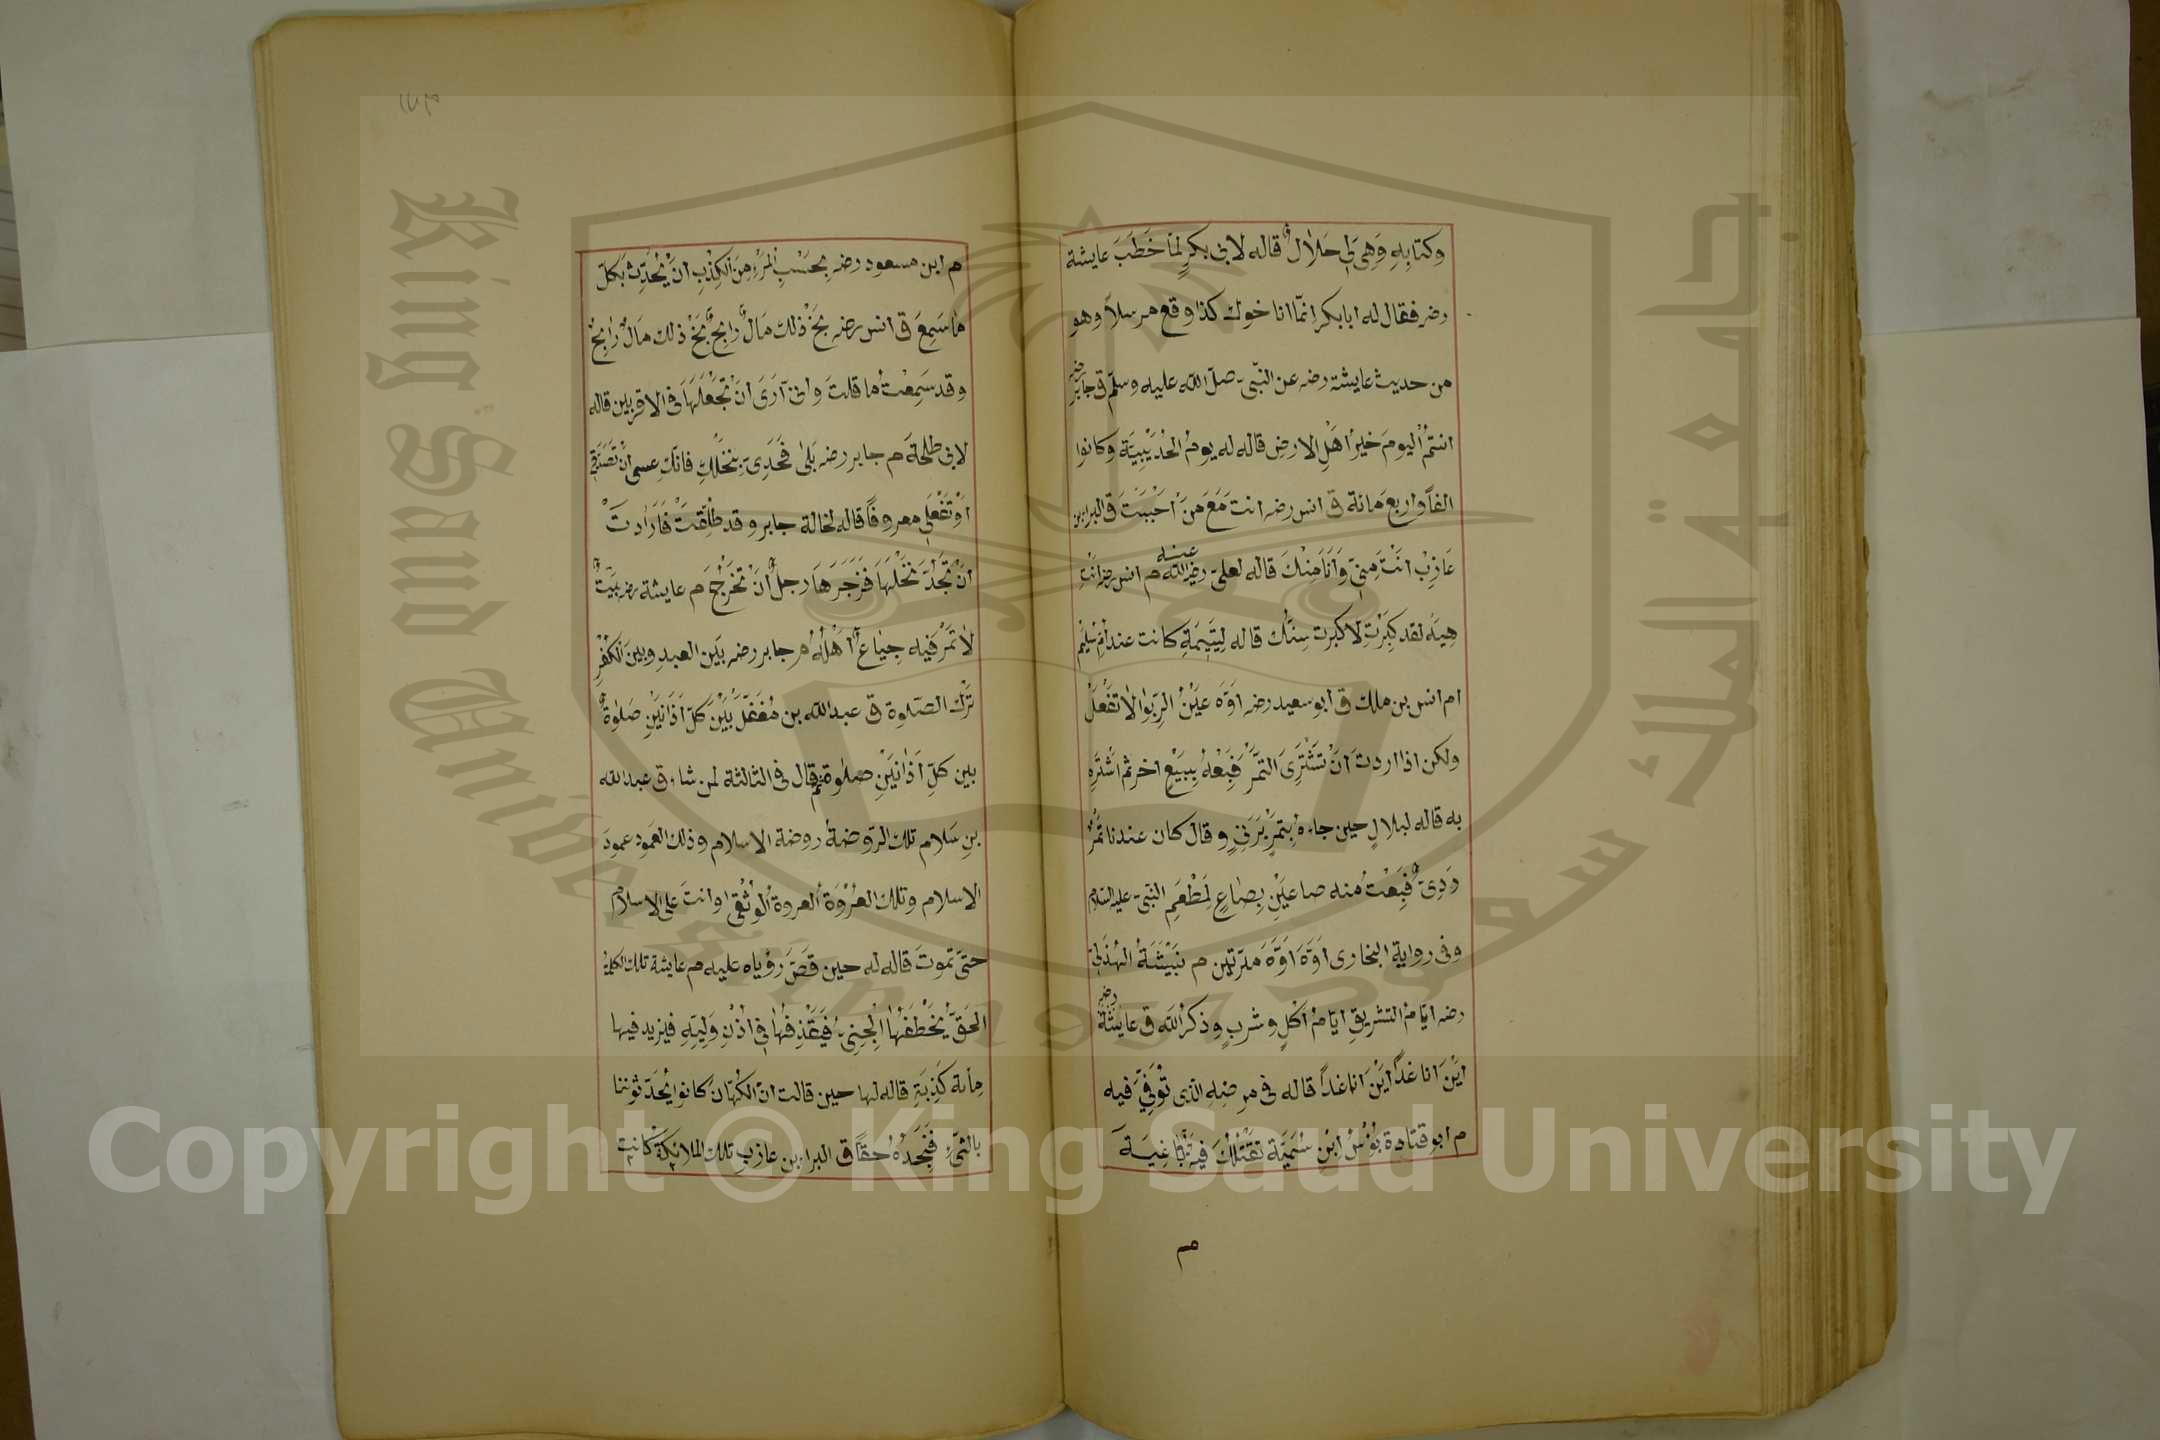 وكتابِهِ وَهِىَ لِى حَلاٰلٌ قاله لابى بكرٍ لمّا خَطَبَ عايشة
رضہ فقال له ابا بكر اِنّما انا خوك كذا وقع مرسلاً وهو
من حديث عايشة رضہ عن النّبى صلّى اللّه عليه وسلّم ق جابر رضہ
انتمُ اليومَ خيرُ اَهْلِ الارضِ قاله له يومُ الحُدَيْبِيَة وكانوا
الفاً واربع مائة ق انس رضہ انتَ مَعَ مَنْ اَحْبَبْتَ ق البراء بن
عَازِبْ انْتَ مِنىِّ وَاَنَا مِنْكَ قاله لعلىّ رضى اللّه عنه م انس رضہ انتِ
هِيَهْ لقد كَبِرْتِ لا كبرت سِنُّكِ قاله لِيَتِيمَةٍ كانت عند اُمّ سُلَيْم
ام انس بن ملك ق ابو سعيد رضہ اَوَّه عَيْنُ الرِّبٰوا لا تفْعَلْ
ولكن اذا اردتَ انْ تَشْتَرِىَ التّمْرَ فَبِعْهُ بِبَيْعٍ اٰخر ثم اشْتَرِهِ
به قاله لبلالٍ حين جاءهُ بِتمرٍ بَرْنِىٍّ وقال كان عندنا تَمْرٌ
رَدِىٌّ فَبِعْتُ منه صاعَيْنِ بِصَاعٍ لِمَطْعَمِ النّبىّ عليه السّلام
وفى رواية البخارى اَوَّهْ اَوَّهْ مرّتين م نُبَيْشَةُ الهُذَلِىّ
رضہ ايّامُ التشريقِ ايّامُ اَكْلٍ وشربٍ وذكرُ اللّه ق عايشة رضہ
ايْنَ انا غداً ايْنَ انا غداً قاله فى مرضِهِ الذّى تُوُفِّىَ فيه
م ابو قتادة بُؤْسُ ابْنِ سُمَيَّة تَقْتُلُكَ فِئَةٌ بَاغِيَة
م
م ابن مسعود رضہ بِحَسْبِ المَرْءِ مِنَ الكِذْبِ انْ يُحَدِّثَ بِكُلّ
مَا سَمِعَ ق انس رضہ بَخْ ذلك مَالٌ رابِحٌ بَخْ ذلك مَالٌ رابِحٌ
وقد سَمِعْتُ ما قلتَ وانى اَرَىَ انْ تَجْعَلَهَا فى الاقربين قاله
لابى طلحةَ م جابر رضہ بَلىٰ فَجُدِّى نخْلَكِ فانّكِ عسى انْ تَصَدَّقى
اَوْ تَفْعَلِى معروفاً قاله لخالة جابر وقد طُلِّقَتْ فَاَرادتْ
انْ تَجُدَّ نَخْلَهَا فَزَجَرَهَا رجلٌ انْ تخرُجْ م عايشة رضہ بَيْتٌ
لاٰ تَمْرَ فيه جِيَاعٌ اَهْلُهُ م جابر رضہ بَيْن العبدِ وبينَ الكُفْرِ
تَرْك الصّلوة ق عبد اللّه بن مُغَفّل بَيْنَ كلّ اَذَانَيْنِ صَلوٰةٌ
بين كلّ اَذَانَيْنِ صلوٰة ثم قال فى الثالثة لمن شاء ق عبد اللّه
بنِ سَلاٰم تلك الرّوضةُ روضة الاسلام وذلك العمود عمودَ
الاسلام وتلك العُرْوَةُ العروة الوُثْقى وانتَ على الاسلام
حتىّ تموتَ قاله له حين قَصّ رؤياه عليه م عايشة تلك الكلمةُ
الحَقّ يَخْطَفُهَا الجِنىّ فيَقْذِفُهَا فى اُذْنِ وَلِيّهِ فيزيد فيها
مِاٮة كَذِبَةٍ قاله لها حين قالت انّ الكُهّانَ كانوا يُحَدّثوننا
بالشّىْءِ فَنَجِدُهُ حقّاً ق البراء بن عازب تلك الملائكةُ كانت